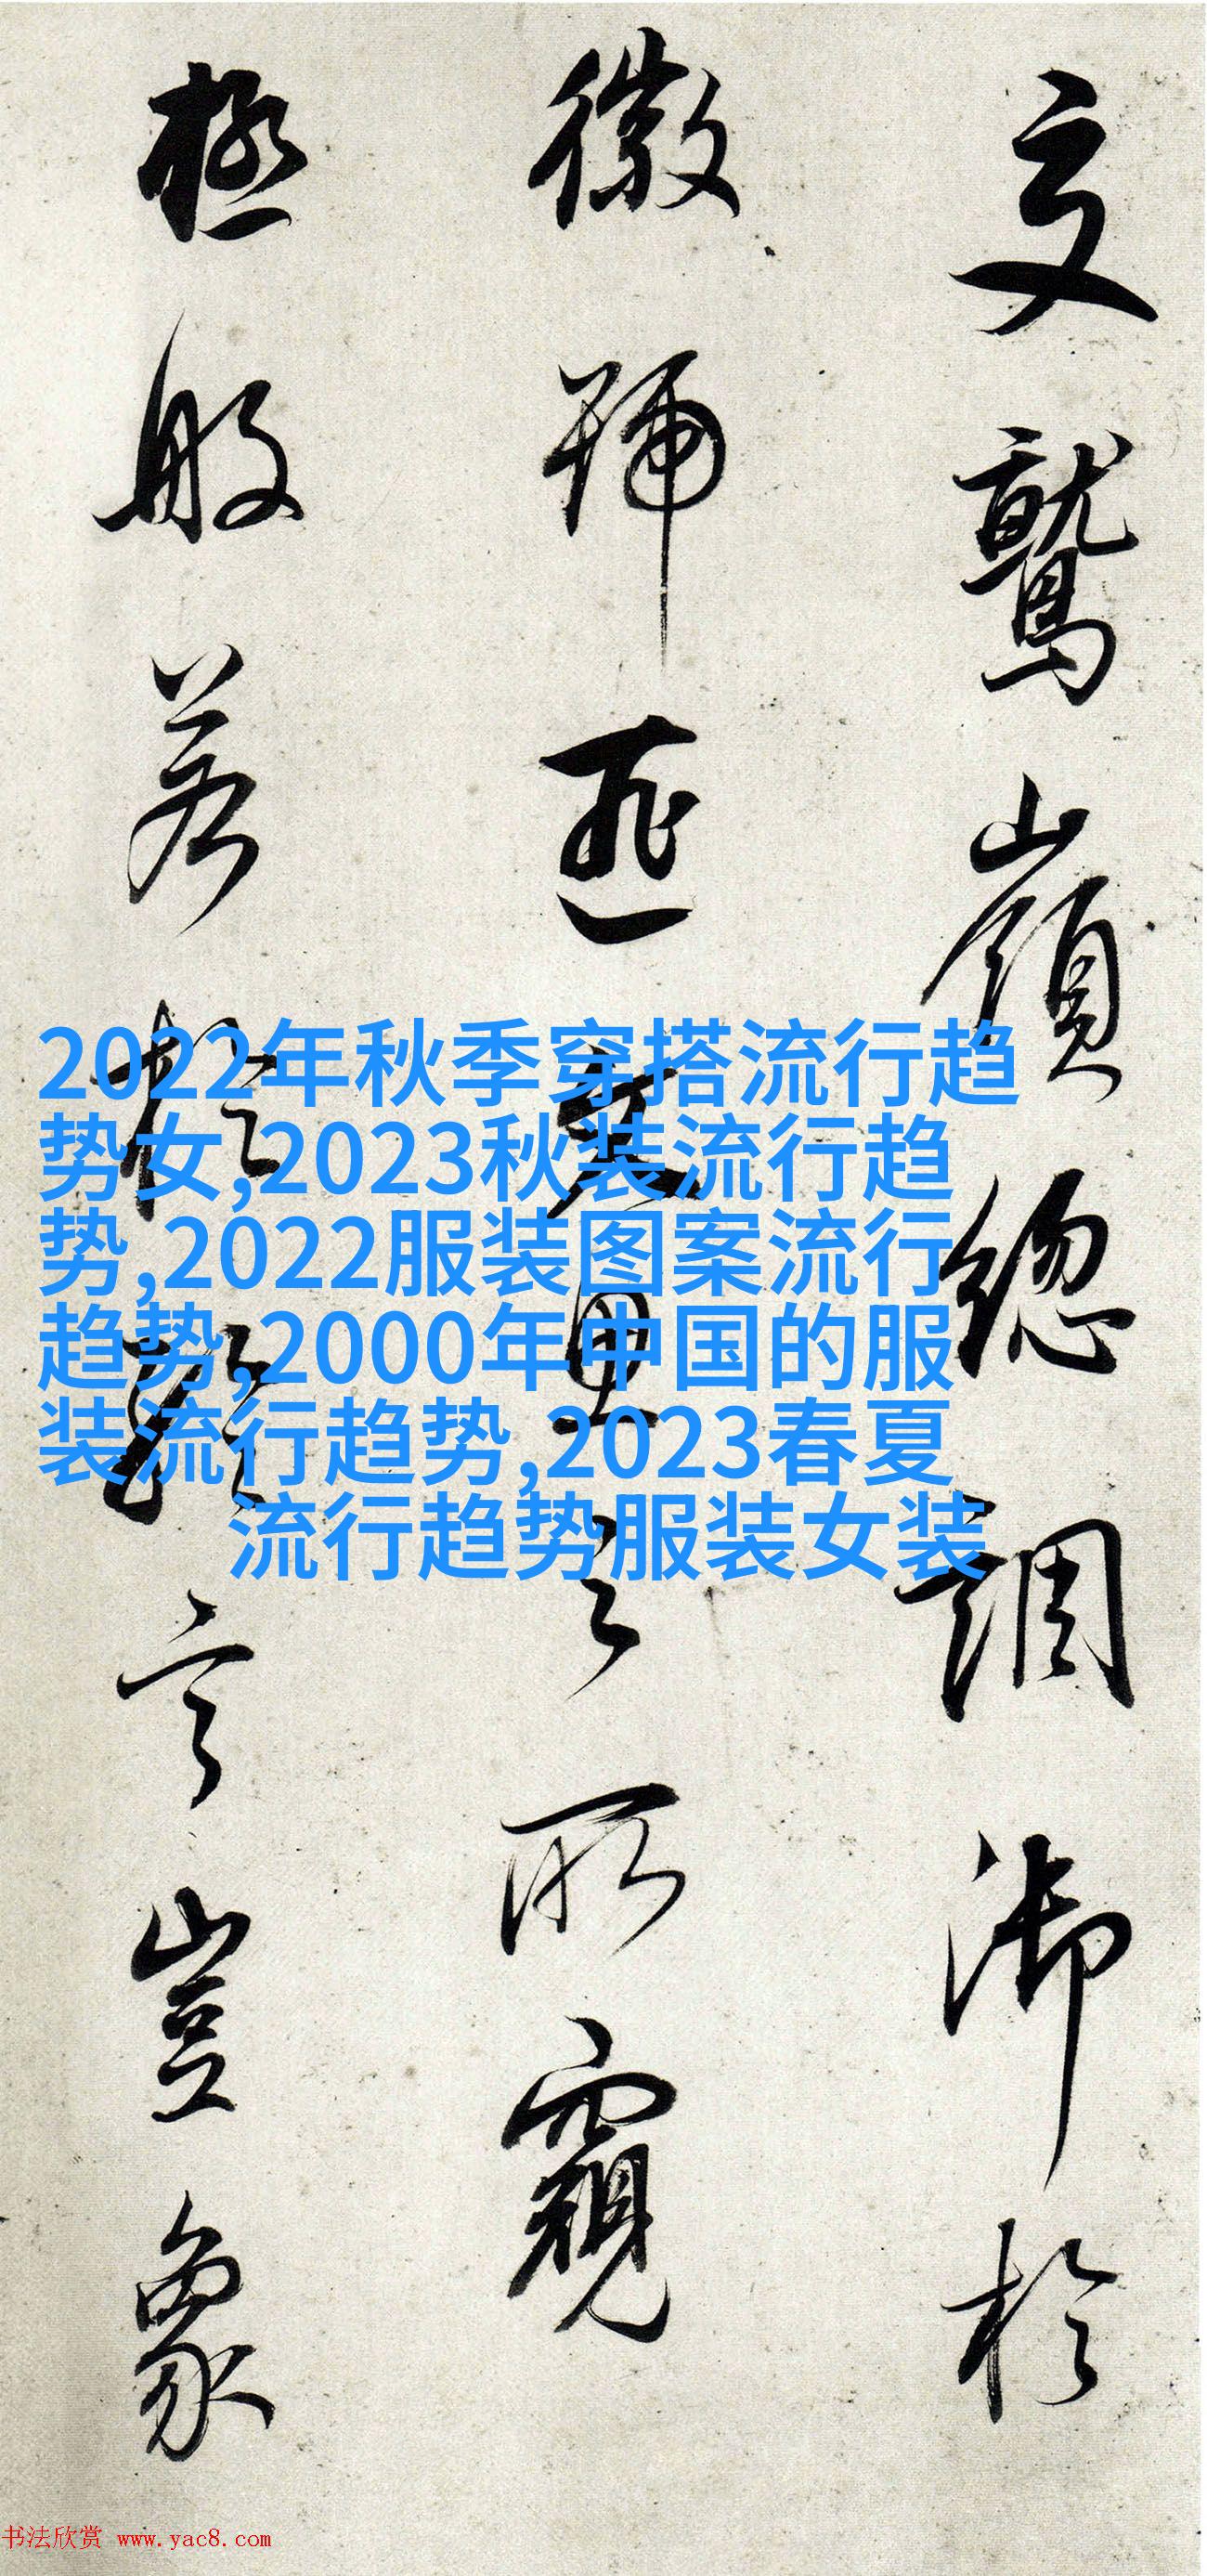 鷲嶺總調御於
徽號匪之所窺
極般若於言豈象
2022年秋季穿搭流行趋
势女,2023秋装流行趋
势,2022服装图案流行
趋势,2000年中国的服
装流行趋势,2023春夏
流行趋势服装女装
书法欣赏 www.yac8.com